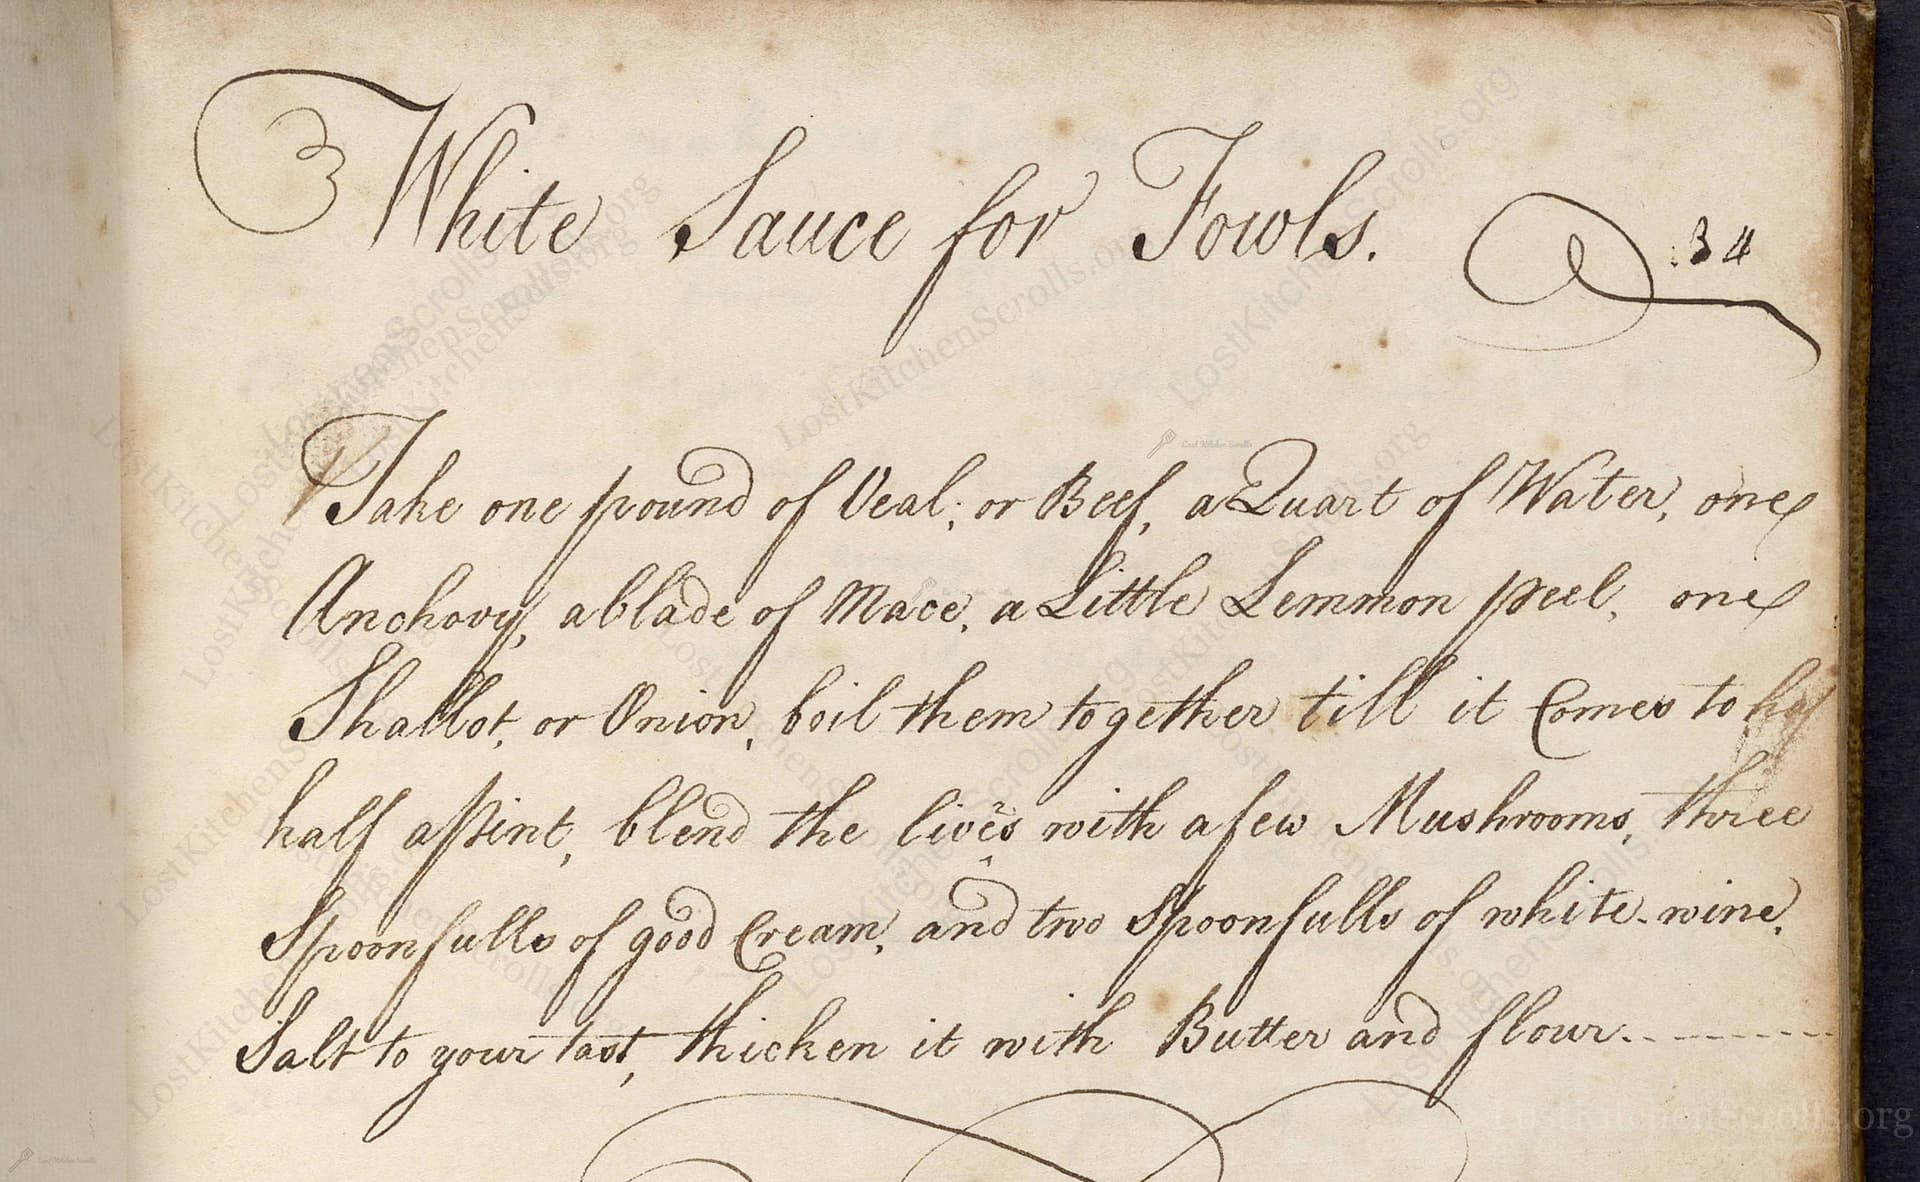 White Sauce for Fowls.
:34
Take one pound of Veal; or Beef, a Quart of Water, one
Anchovy, a blade of Mace, a Little Lemmon peel, one
Shallot, or Onion, boil them together till it Comes to
half a pint, blend the livers with a few Mushrooms, three
Spoonfulls of good Cream, and two Spoonfulls of white-wine,
Salt to your tast, thicken it with Butter and flour.
LostKitchenScrolls.org